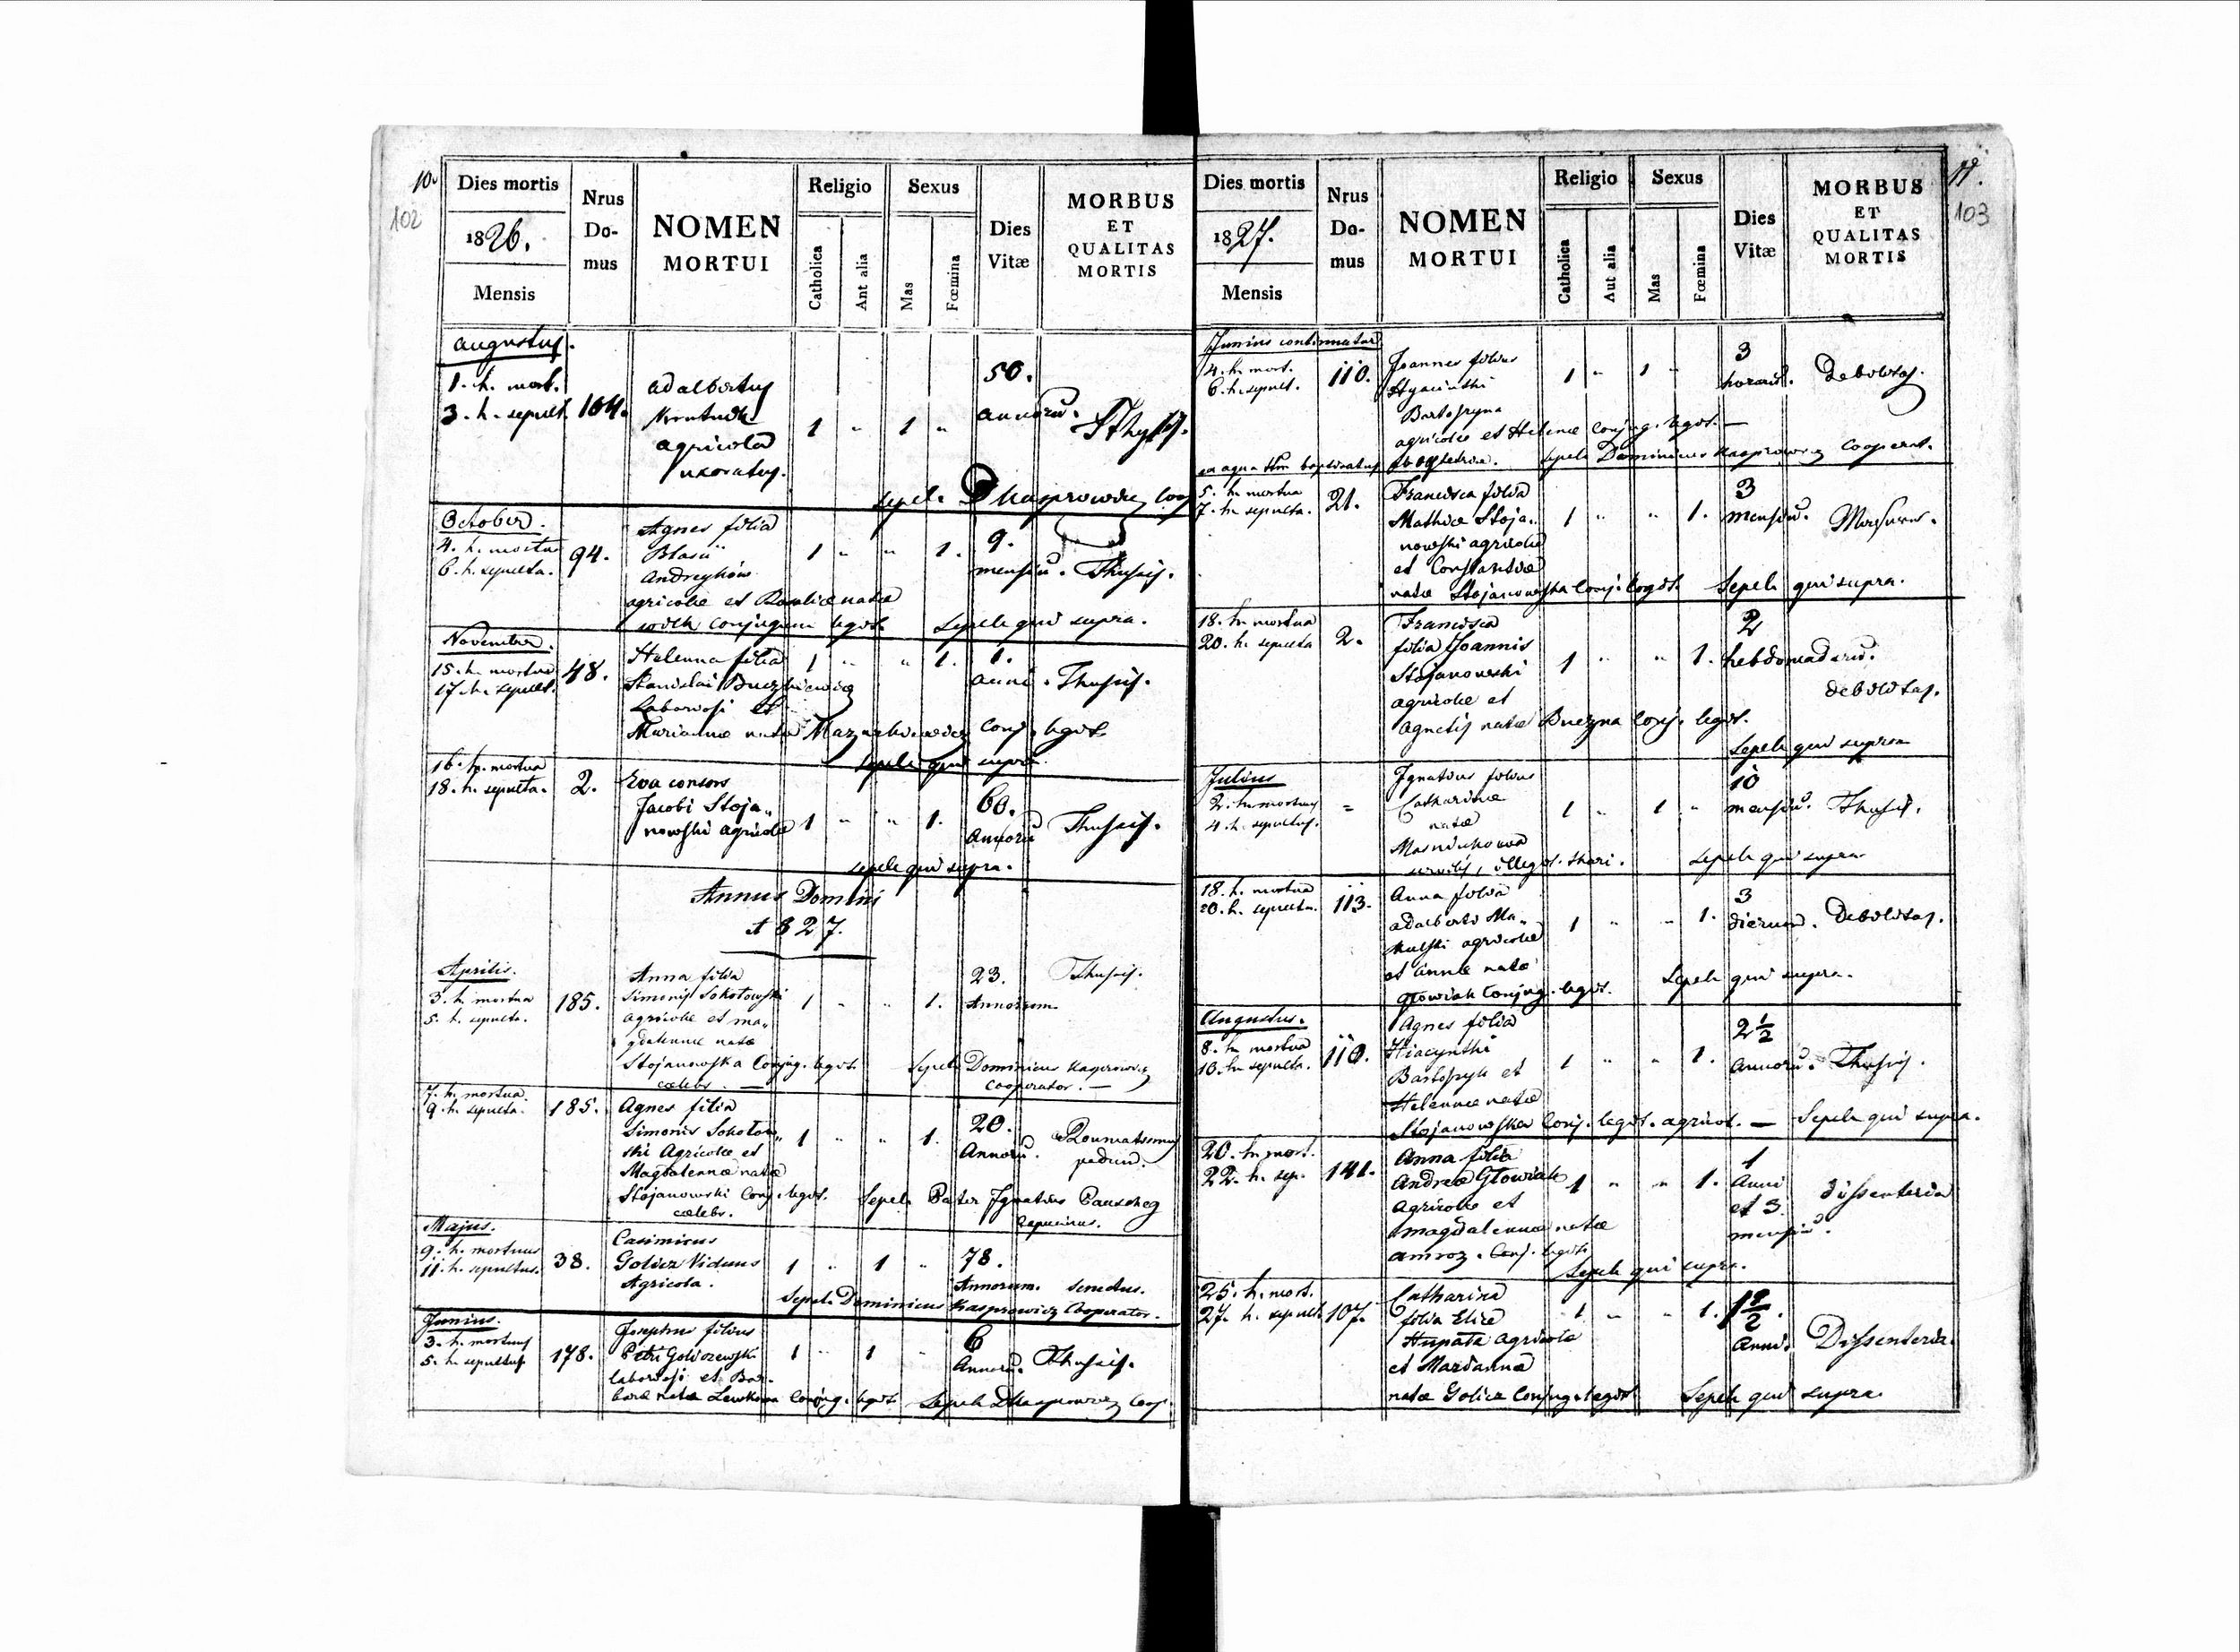 10.
102
Dies mortis
1826.
Mensis
Nrus
Do-
mus
NOMEN
MORTUI
Religio
Catholica
Aut alia
Sexus
Mas
Fœmina
Dies
Vitæ
MORBUS
ET
QUALITAS
MORTIS
Augustus.
1. h. mort.
3. h. sepult.
104.
Adalbertus
agricola
uxoratus.
1 " 1 "
50.
annorū.
Sepel. D Kasprowicz Coop
October.
4. h. mortua
6. h. sepulta.
94.
Agnes filia
Blasii
Andreyków
agricolæ et Rosaliæ natæ
conjugum legit.
1 " " 1.
9.
mensiū. Thussis.
Sepel. qui supra.
November.
15. h. mortua
17. h. sepult.
48.
Helenna filia
Stanislai
Laboriosi et
Mariannæ natæ Mazurkiewicz Conj. legit.
1 " " 1.
1.
anni. Thussis.
Sepel. qui supra.
16. h. mortua
18. h. sepulta.
2.
Eva consors
Jacobi Stoja„
nowski agricolæ
1 " " 1.
60.
Annorū Thussis.
sepele qui supra.
Annus Domini
1827.
Aprilis.
3. h. mortua
5. h. sepulta.
185.
Anna filia
Simonis Sokołowski
Agricolæ et Ma„
gdalennæ natæ
Stojanowska Conjug. legit.
cælebs. —
1 " " 1.
23.
Annorum
Thussis.
Sepel. Dominicus Kasprowicz
Cooperator. —
7. h. mortua.
9. h. sepulta.
185.
Agnes filia
Simonis Sokołow„
ski Agricolæ et
Magdalennæ natæ
Stojanowski Conj. legit.
cælebs.
1 " " 1.
20.
Annorū.
Reumatismus
pedum.
Sepel. Pater Ignatius
Capucinus.
Majus.
9. h. mortuus
11. h. sepultus.
38.
Casimirus
Golicz Viduus
Agricola.
1 " 1 "
78.
Annorum. senectus.
Sepel. Dominicus Kasprowicz Cooperator.
Junius.
3. h. mortuus
5. h. sepultus
178.
Josephus filius
Petri Goliszewski
laboriosi et Bar-
baræ natæ Conjug. legit.
1 " 1 "
6
Annorū. Thussis.
Sepel. D Kasprowicz Coop.
11.
103
Dies mortis
1827.
Mensis
Nrus
Do-
mus
NOMEN
MORTUI
Religio
Catholica
Aut alia
Sexus
Mas
Fœmina
Dies
Vitæ
MORBUS
ET
QUALITAS
MORTIS
Junius continuatur
4. h. mort.
6. h. sepult.
110.
Joannes filius
Hyacinthi
agricolæ et Helenæ Conjug. legit. —
ex aqua baptisatus ab obstetrice.
1 " 1 "
3
horarū. Debilitas.
Sepel. Dominicus Kasprowicz Cooperat.
5. h. mortua
7. h. sepulta.
21.
Francisca filia
Mathiæ Stoja„
nowski agricolæ
et Constantiæ
natæ Stojanowska Conj. legit.
1 " " 1.
3
mensiū.
Sepele qui supra.
18. h. mortua
20. h. sepulta
2.
Francisca
filia Joannis
Stojanowski
agricolæ et
Agnetis natæ Conj. legit.
1 " " 1.
2
hebdomadarū.
debilitas.
Sepele qui supra
Julius
2. h. mortuus
4. h. sepultus.
=
Ignatius filius
Catharinæ
natæ
illegit. thori.
1 " 1 "
10
mensiū. Thussis.
Sepele qui supra
18. h. mortua
20. h. sepulta.
113.
Anna filia
Adalberti Ma„
kulski agricolæ
et Annæ natæ
Głowiak Conjug. legit.
1 " " 1.
3
dierum. Debilitas.
Sepele qui supra.
Augustus.
8. h. mortua
10. h. sepulta.
110.
Agnes filia
Hiacynthi
et
Helennæ natæ
Stojanowska Conj. legit. agricol. — Sepele qui supra.
1 " " 1.
2 1/2
Annorū. Thussis.
20. h. mort.
22. h. sep.
141.
Anna filia
Andreæ Głowiak
Agricolæ et
Magdalennæ natæ
Amroz. Conj. legit.
1 " " 1.
1
Anni
et 3.
mensiū.
dissenteria
Sepele qui supra.
25. h. mort.
27. h. sepult.
107.
Catharina
filia Eliæ
Hupała Agricolæ
et Marianna
natæ Golicz Conjug. legit.
1 " " 1.
Anni. Dissenteria.
Sepele qui supra.